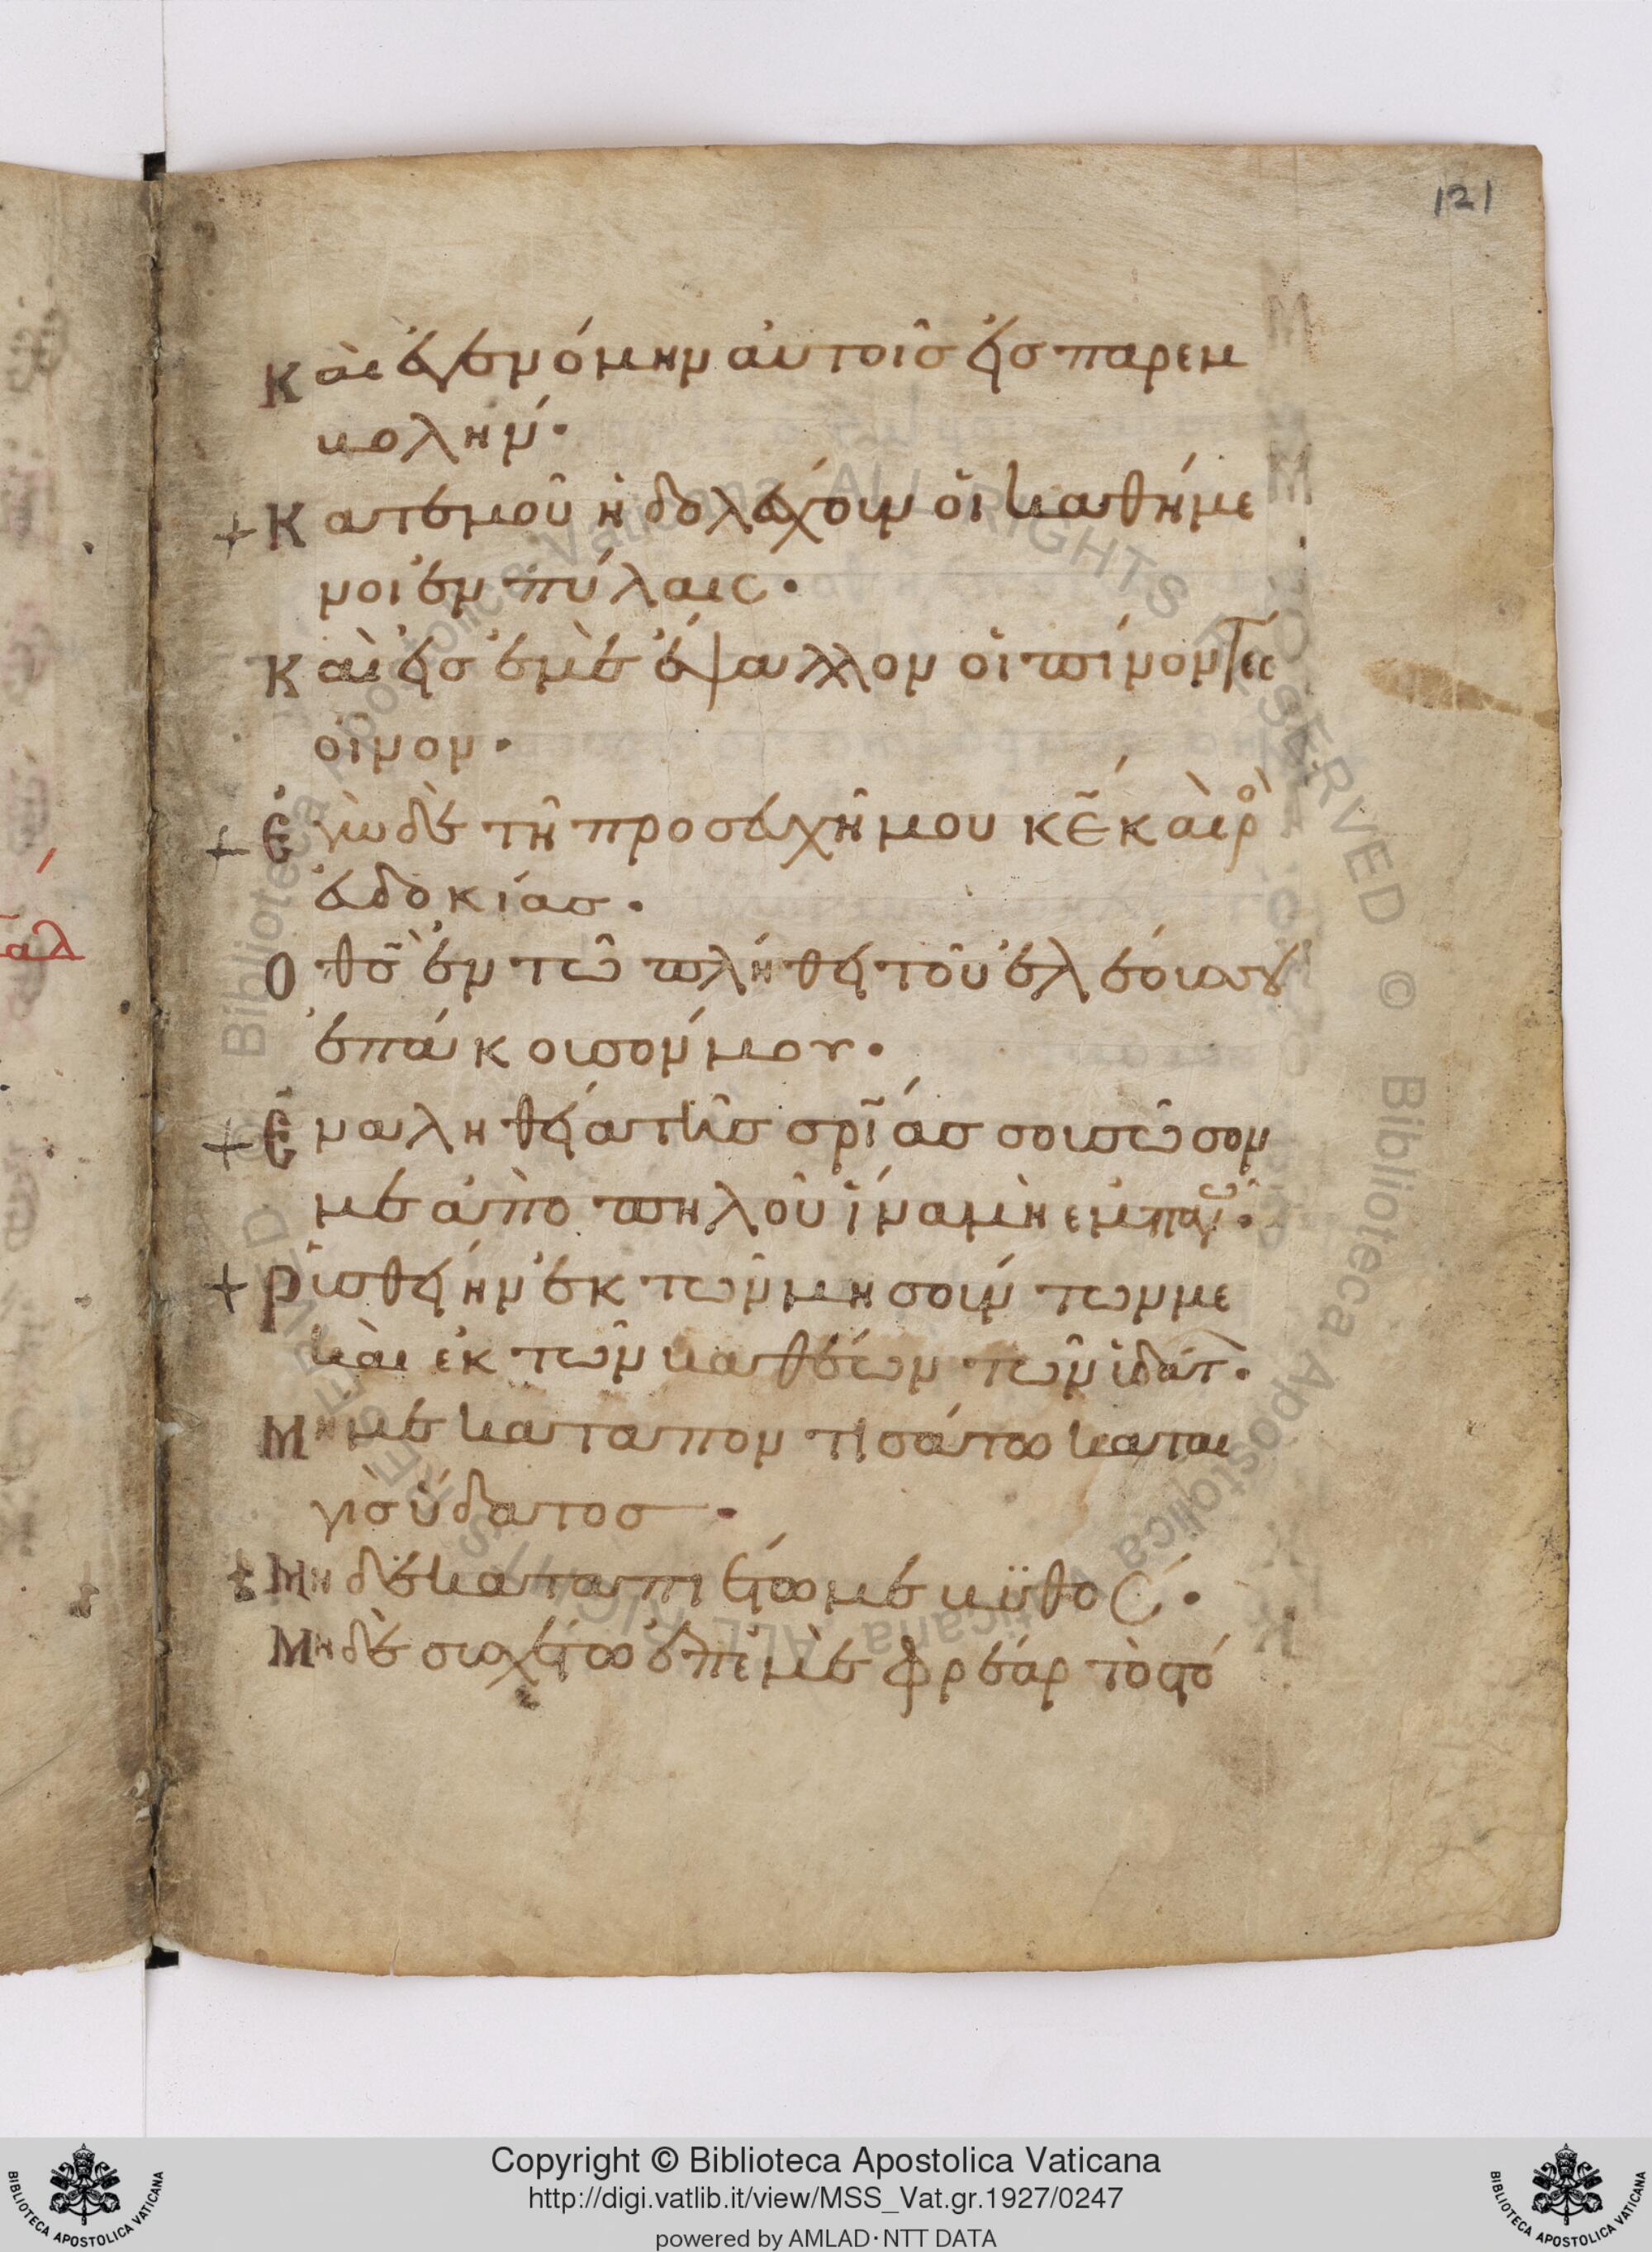 121
Καὶ ἐγενόμην αὐτοῖς εἰς παρεμ
βολήν·
+ Κατεμοῦ ἠδολέσχουν οἱ καθήμε
νοι ἐν πύλαις·
Καὶ εἰς ἐμὲ ἔψαλλον οἱ πίνοντες
οἶνον·
+ Ἐγὼ δὲ τῆ προσευχῆ μου κ̅ε̅ καιρὸ
εὐδοκίας·
Ο θ̅σ̅ ἐν τῶ πλήθει τοῦ ἐλέους σου
ἐπάκουσόν μου·
+ Ἐν αληθεία τῆς σ̅ρ̅ίας σου σῶσον
με ἀπὸ πηλοῦ ἵνα μὴ εμπαγῶ·
+ Ρυσθείην ἐκ τῶν μισούντων με
καὶ ἐκ τῶν βαθέων τῶν ὑδάτ·
Μη με καταποντισάτω καται
γὶς ὕδατος·
+ Μηδὲ καταπιέτω με βϋθός·
Μηδὲ συσχέτω ἐπ' ἐμὲ φρέαρ τὸ στό
αλ
Copyright © Biblioteca Apostolica Vaticana
http://digi.vatlib.it/view/MSS_Vat.gr.1927/0247
powered by AMLAD·NTT DATA
BIBLIOTECA APOSTOLICA VATICANA
BIBLIOTECA APOSTOLICA VATICANA